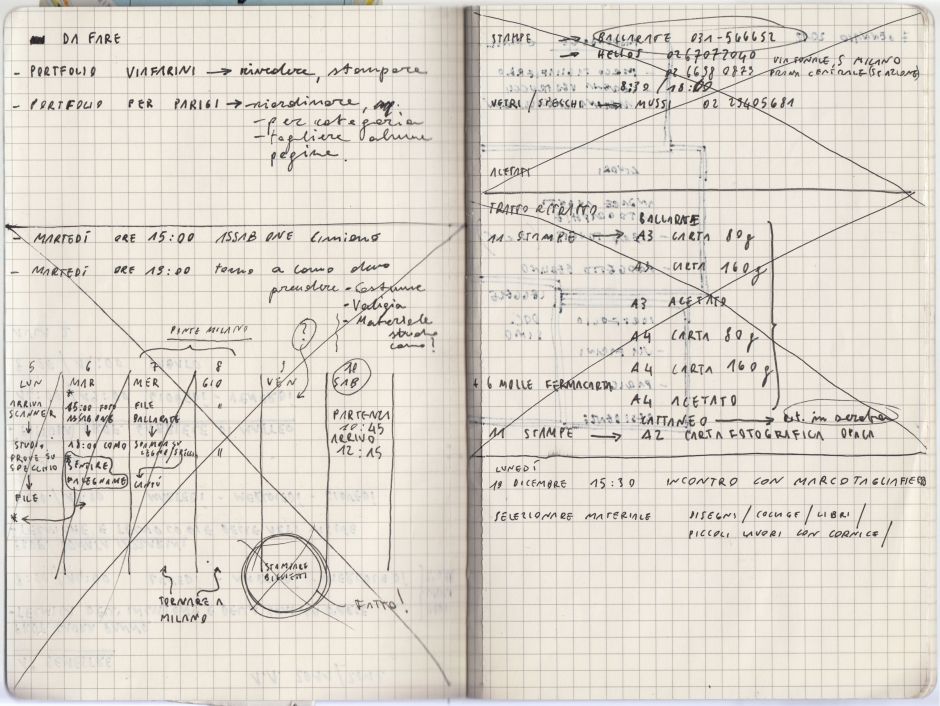 DA FARE
- PORTFOLIO VIAFARINI → rivedere, stampare
- PORTFOLIO PER PARIGI → riordinare,
- per categoria
- togliere alcune
pagine.
- MARTEDÍ ORE 15:00 ASSAB ONE
- MARTEDÍ ORE 19:00 torno a como devo
prendere - Costume
- Valigia
- Materiale
studio
como!
PONTE MILANO
?
5 6 7 8 9 10
LUN MAR MER GIO VEN SAB
ARRIVA
SCANNER
↓
STUDIO
PROVE SU
SPECCHIO
↓
FILE
*
*
15:00 FOTO
ASSAB ONE
↓
18:00 COMO
*
SENTIRE
FALEGNAME
FILE
BALLARATE
↓
STAMPA SU
LEGNO/SPECC.
↓
CANTÚ
"
"
PARTENZA
10:45
ARRIVO
12:15
TORNARE A
MILANO
STAMPARE
BIGLIETTI
FATTO!
STAMPE → BALLARATE 031-566652
→ HELIOS 0267072040 VIA FONALE, 5 MILANO
02 6698 0873
8:30 / 18:00
VETRI / SPECCHIO → MUSSI 02 25405681
ACETATI
TRATTO RITRATTO
BALLARATE
11 STAMPE → A3 CARTA 80g
A3 CARTA 160g
A3 ACETATO
A4 CARTA 80g
A4 CARTA 160g
+ 6 MOLLE FERMACARTA
A4 ACETATO
CATTANEO → est. in serata
11 STAMPE → A2 CARTA FOTOGRAFICA OPACA
LUNEDÍ
19 DICEMBRE 15:30 INCONTRO CON MARCO TAGLIAFIERRO
SELEZIONARE MATERIALE DISEGNI / COLLAGE / LIBRI /
PICCOLI LAVORI CON CORNICE /